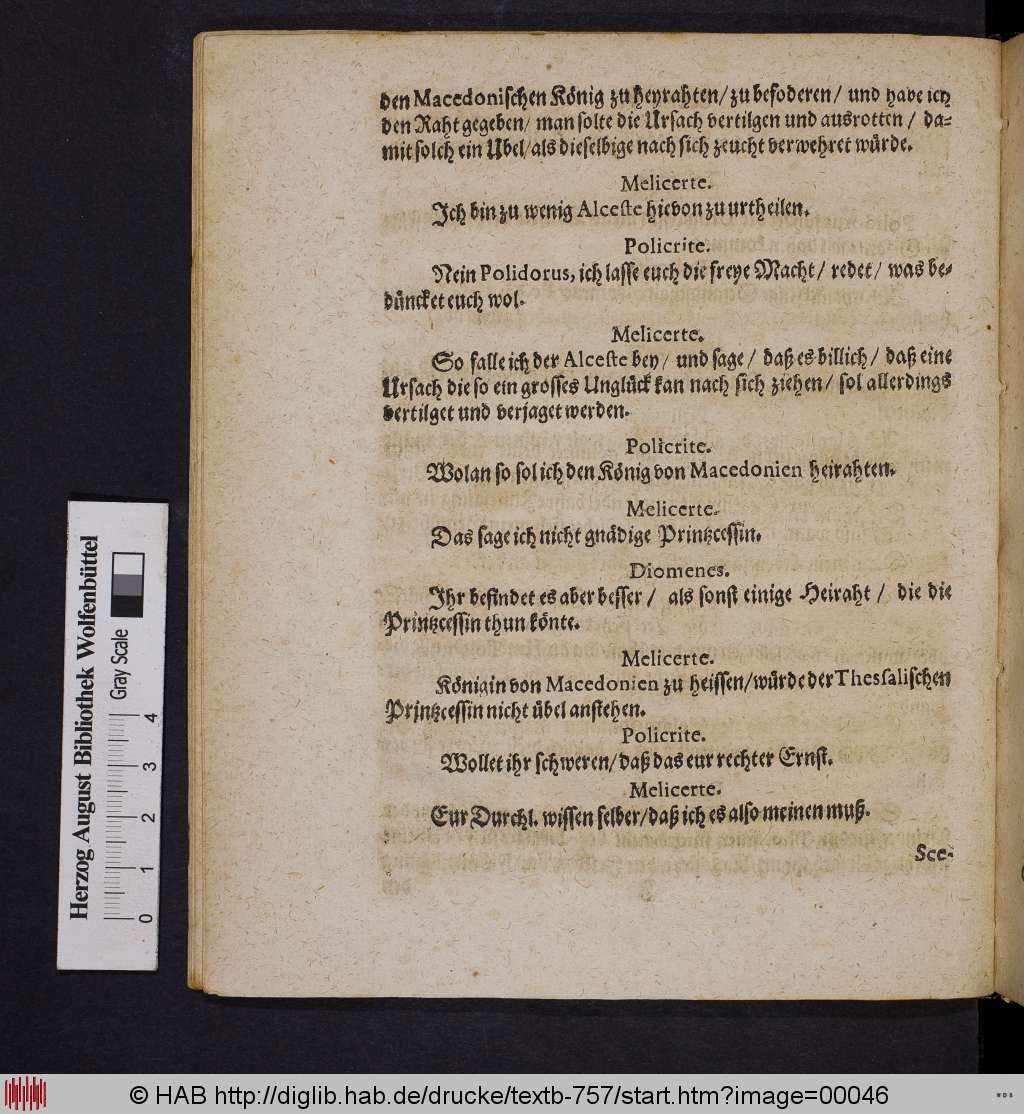 den Macedonischen König zu heyrahten/ zu befoderen/ und habe ich
den Raht gegeben/ man solte die Ursach vertilgen und ausrotten/ da-
mit solch ein Ubel/ als dieselbige nach sich zeucht verwehret würde.
Melicerte.
Ich bin zu wenig Alceste hievon zu urtheilen.
Policrite.
Nein Polidorus, ich lasse euch die freye Macht/ redet/ was be-
düncket euch wol.
Melicerte.
So falle ich der Alceste bey/ und sage/ daß es billich/ daß eine
Ursach die so ein grosses Unglück kan nach sich ziehen/ sol allerdings
vertilget und verjaget werden.
Policrite.
Wolan so sol ich den König von Macedonien heirahten.
Melicerte.
Das sage ich nicht gnädige Printzcessin.
Diomenes.
Ihr befindet es aber besser/ als sonst einige Heiraht/ die die
Printzcessin thun könte.
Melicerte.
Königin von Macedonien zu heissen/ würde der Thessalischen
Printzcessin nicht übel anstehen.
Policrite.
Wollet ihr schweren/ daß das eur rechter Ernst.
Melicerte.
Eur Durchl. wissen selber/ daß ich es also meinen muß.
Sce-
Herzog August Bibliothek Wolfenbüttel
Gray Scale
0 1 2 3 4
© HAB http://diglib.hab.de/drucke/textb-757/start.htm?image=00046